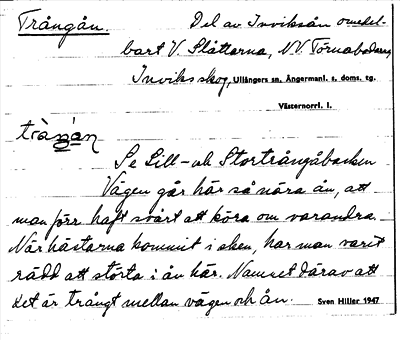 Trångån. Del av Inviksån omedel-
bart V. Slåttarna, NV. Törnabodarna,
Inviks skog, Ullångers sn, Ångermanl. s. doms. tg.
Västernorrl. l.
Se Lill- och Stortrångåbacken
Vägen går här så nära ån, att
man förr haft svårt att köra om varandra.
När hästarna kommit i sken, har man varit
rädd att störta i ån här. Namnet därav att
det är trångt mellan vägen och ån. Sven Hiller 1947